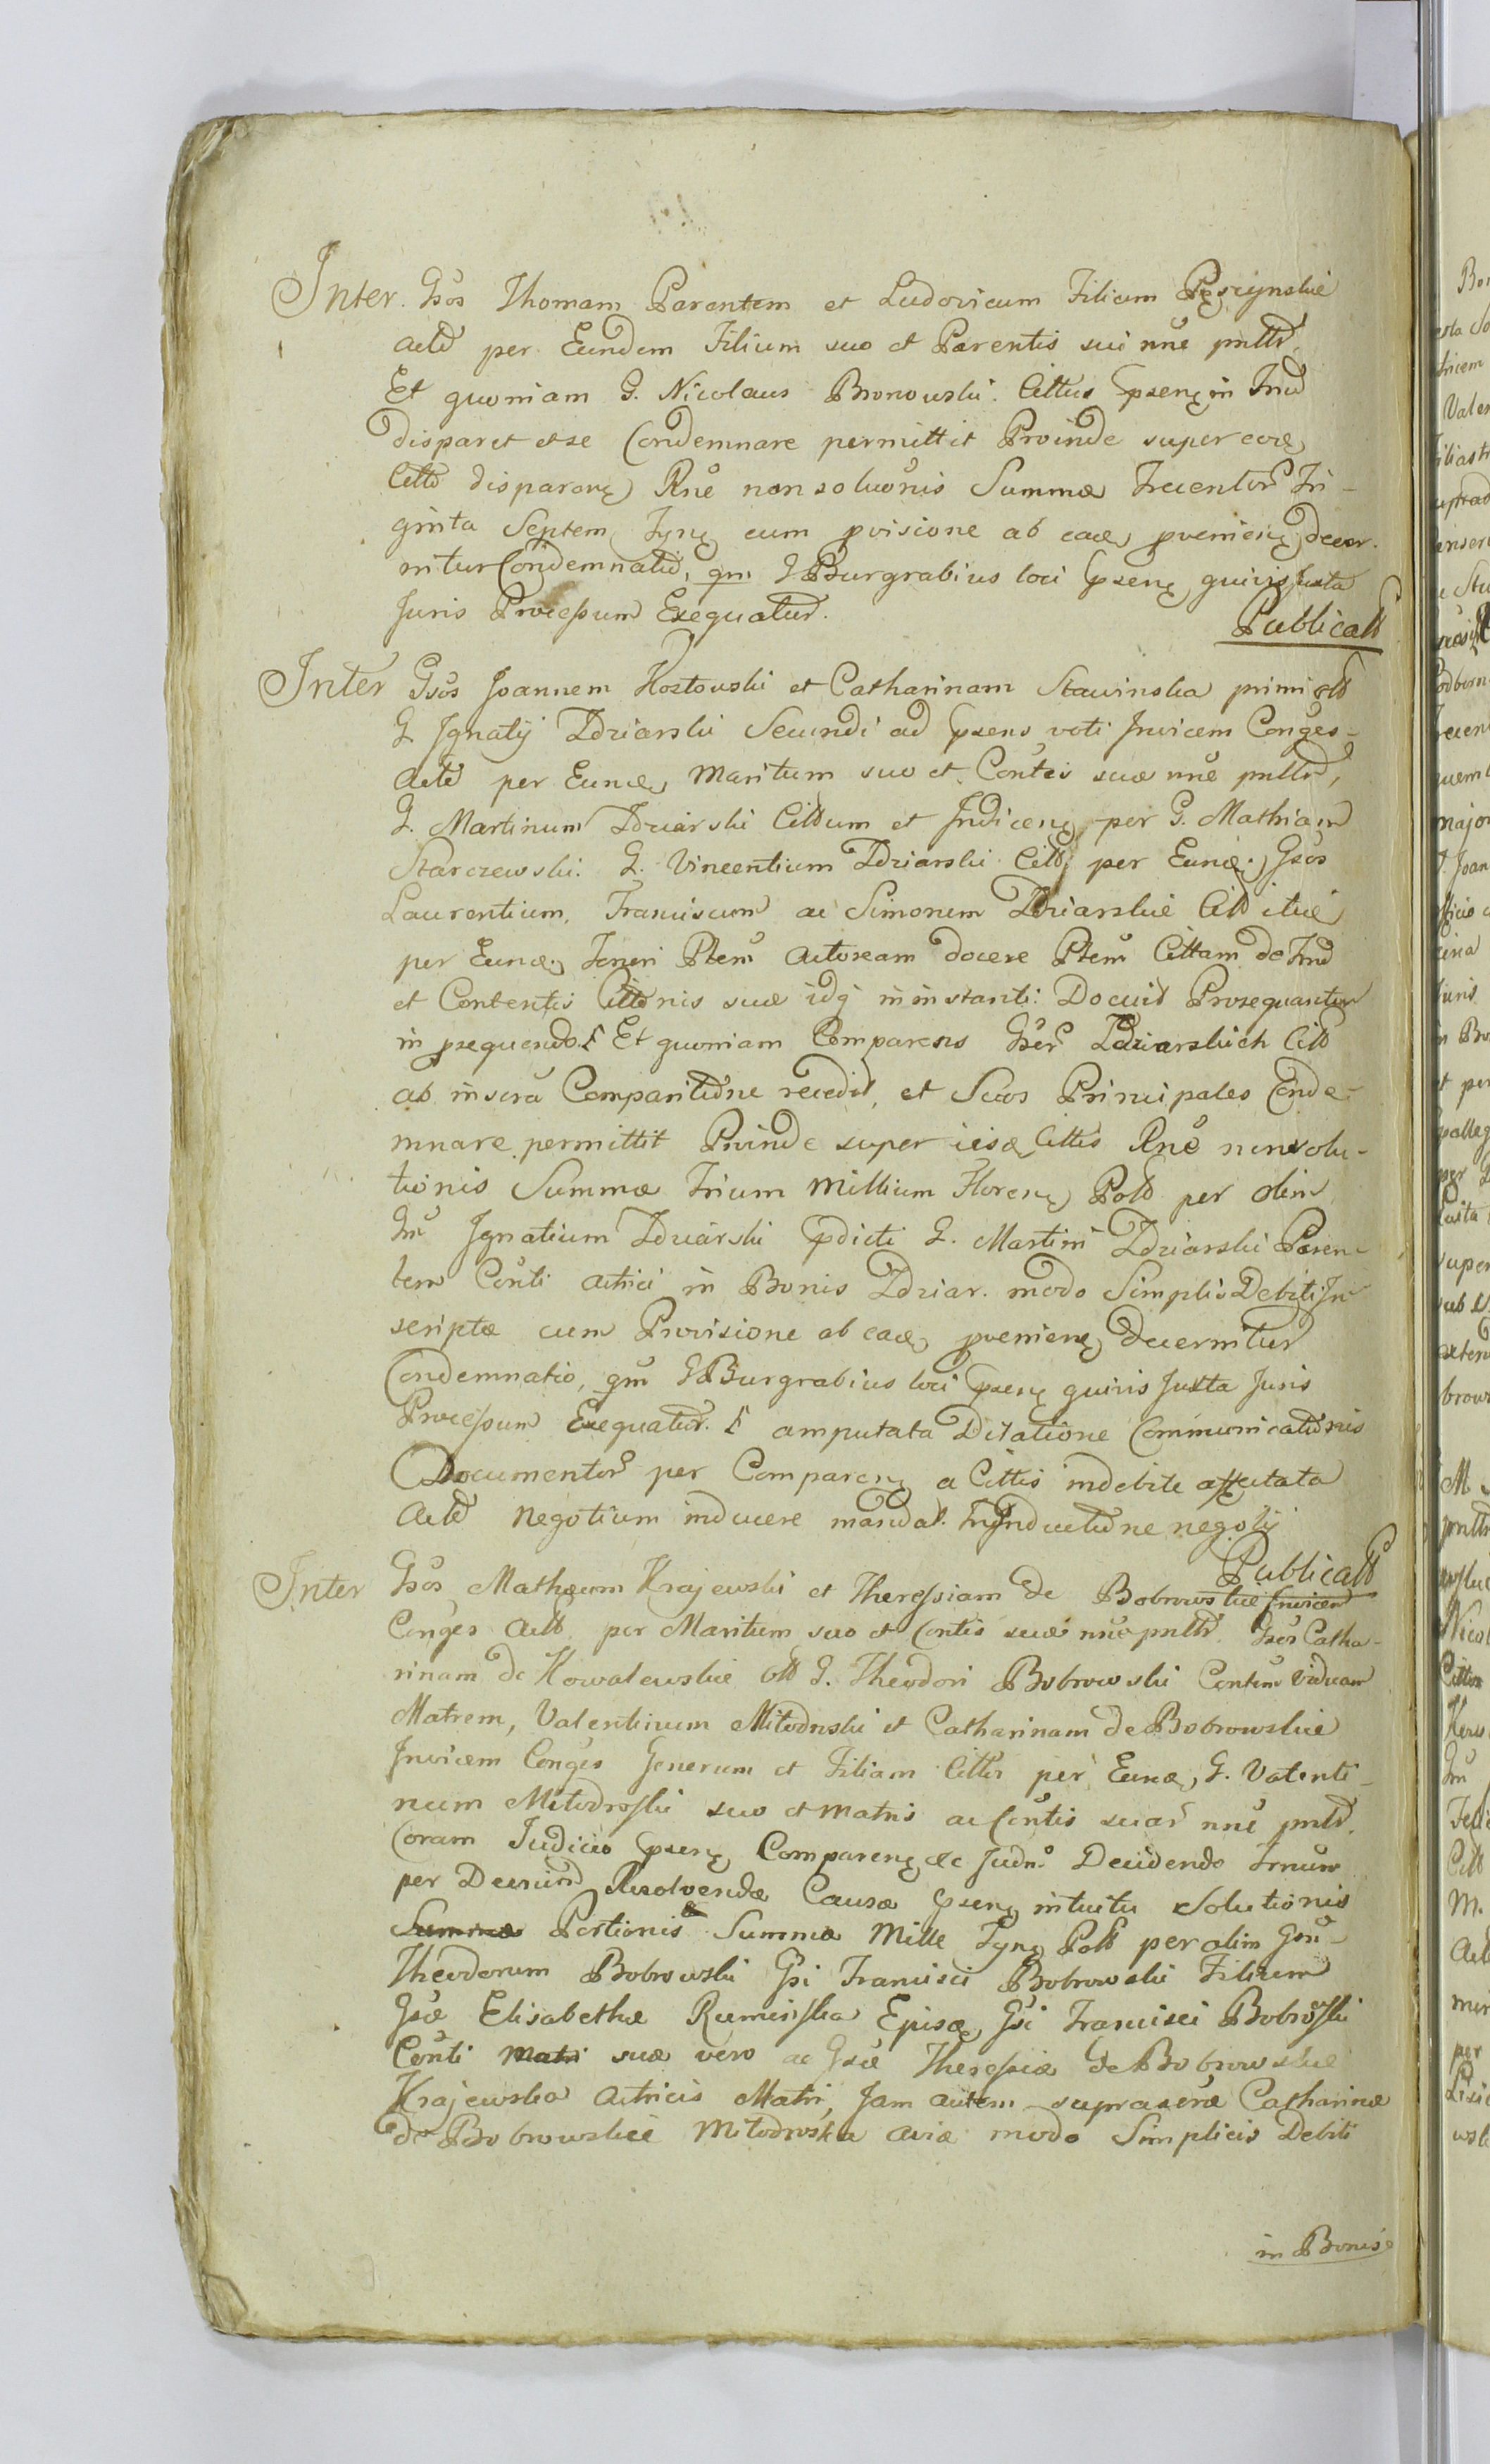 Inter Gsos Thomam Parentem et Ludovicum Filium
actō per Eundem Filium suo et Parentis sui nnē pnttō
Et quoniam G. Nicolaus Bronowski Cittus psenę in Indō
disparet et se Condemnare permittit Proinde super eoę
Cittō disparenę Rnē non soluōnis Summæ Trecentor Tri-
ginta Septem Tynę cum pvisione ab eaę pvenienę decer-
nitur Condemnatiō, qm G Burgrabius loci psenę quivis Juxta
Juris Processum Exequatur.
Publicatt
Inter Gsos Joannem Kostowski et Catharinam Stawinska primi ott
G Ignatij Zdziarski Secundi ad psens voti Invicem Conges-
Actō per Eunæ, Maritum suo et Contis suæ nnē pnttō,
G. Martinum Zdziarski Cittum et Indicenę per G. Mathiam
Starczewski. G. Vincentium Zdziarski Citt per Eunæ, Gsos
Laurentium, Franciscum ac Simonem Zdziarskie Citt
per Eunæ, Teneri Ptem Actoream docere Ptem Cittam de Ind
et Contentis Cittōnis suæ idq in instanti: Docuit Prosequantur
in psequendo Et quoniam Comparens Gser Zdziarskich Citt
ab inscra Comparitiōne recedit, et Suos Principales Conde-
mnare permittit Pvinde super iisæ Cittis Rnē non solu-
tionis Summæ Trium Millium Florenę Poll per olim
Gm Ignatium Zdziarski pdicti G. Martini Zdziarski Paren-
tem Conti Actrici in Bonis Zdziar. modo Simplis Debiti In-
scriptæ cum Provisione ab eaæ, pvenienę decernitur
Condemnatio, qm G Burgrabius loci psenę quivis Juxta Juris
Processum Exequatur. amputata Dilatione Communicatiōnis
Documentor per Comparenę a Cittis indebite affectata
Actō negotium inducere mandat. In Inductiōne negotij
Publicatt
Inter Gsos Mathæum Krajewski et Theressiam de Bobrowskie Invicem
Conges Actt per Maritum suo et Contis suæ nnē pnttr. Gsos Catha-
rinam de Kowalewskie ott G. Theodori Bobrowski Contem Viduam
Matrem, Valentinum Mitodroski et Catharinam de Bobrowskie
Invicem Conges Generum et Filiam Cittos per Eunæ, G. Valenti-
num Mitodroski suo et Matris ac Contis suar nnē pnttr.
Coram Judicio psenę Comparenę ac Judm Decidendo Trnum
per Decrum Resolvendæ Causæ psenę intuitu Solutionis
Summæ Portionis Summæ Mille Tynę Poll per olim Gsu-
Theodorum Bobrowski Gsi Francisci Bobrowski Filium
Gsæ Elisabethæ Rumińska Episæ, Gsi Francisci Bobroski
Conti Matri suæ vero ac Gsæ Theressiæ de Bobrowskie
Krajewska Actricis Matri, Jam autem suprascræ Catharinæ
de Bobrowskie Mitodroska aviæ modo Simplicis Debiti
in Bonis